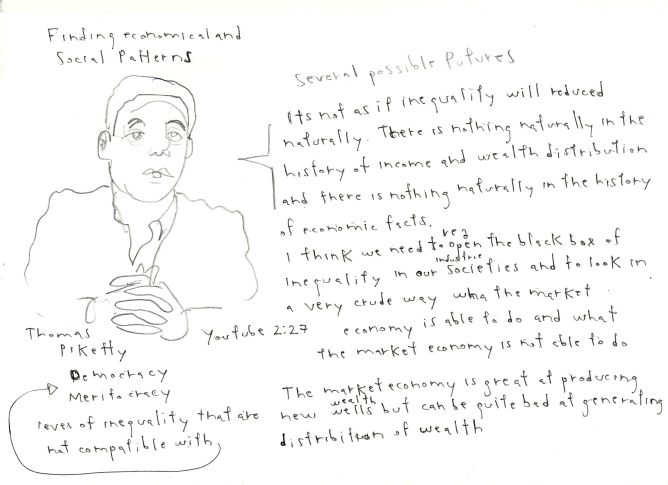 Finding economical and
Social Patterns
Several possible Futures
Its not as if inequality will reduced
naturally. There is nothing naturally in the
history of income and wealth distribution
and there is nothing naturally in the history
of economic facts.
I think we need to open the black box of
industrie
inequality in our societies and to look in
a very crude way the market
economy is able to do and what
the market economy is not able to do
Thomas
Piketty
Youtube 2:27
Democracy
Meritocracy
leves of inequality that are
not compatible with
The market economy is great at producing
wealth
new wells but can be quite bad at generating
of wealth